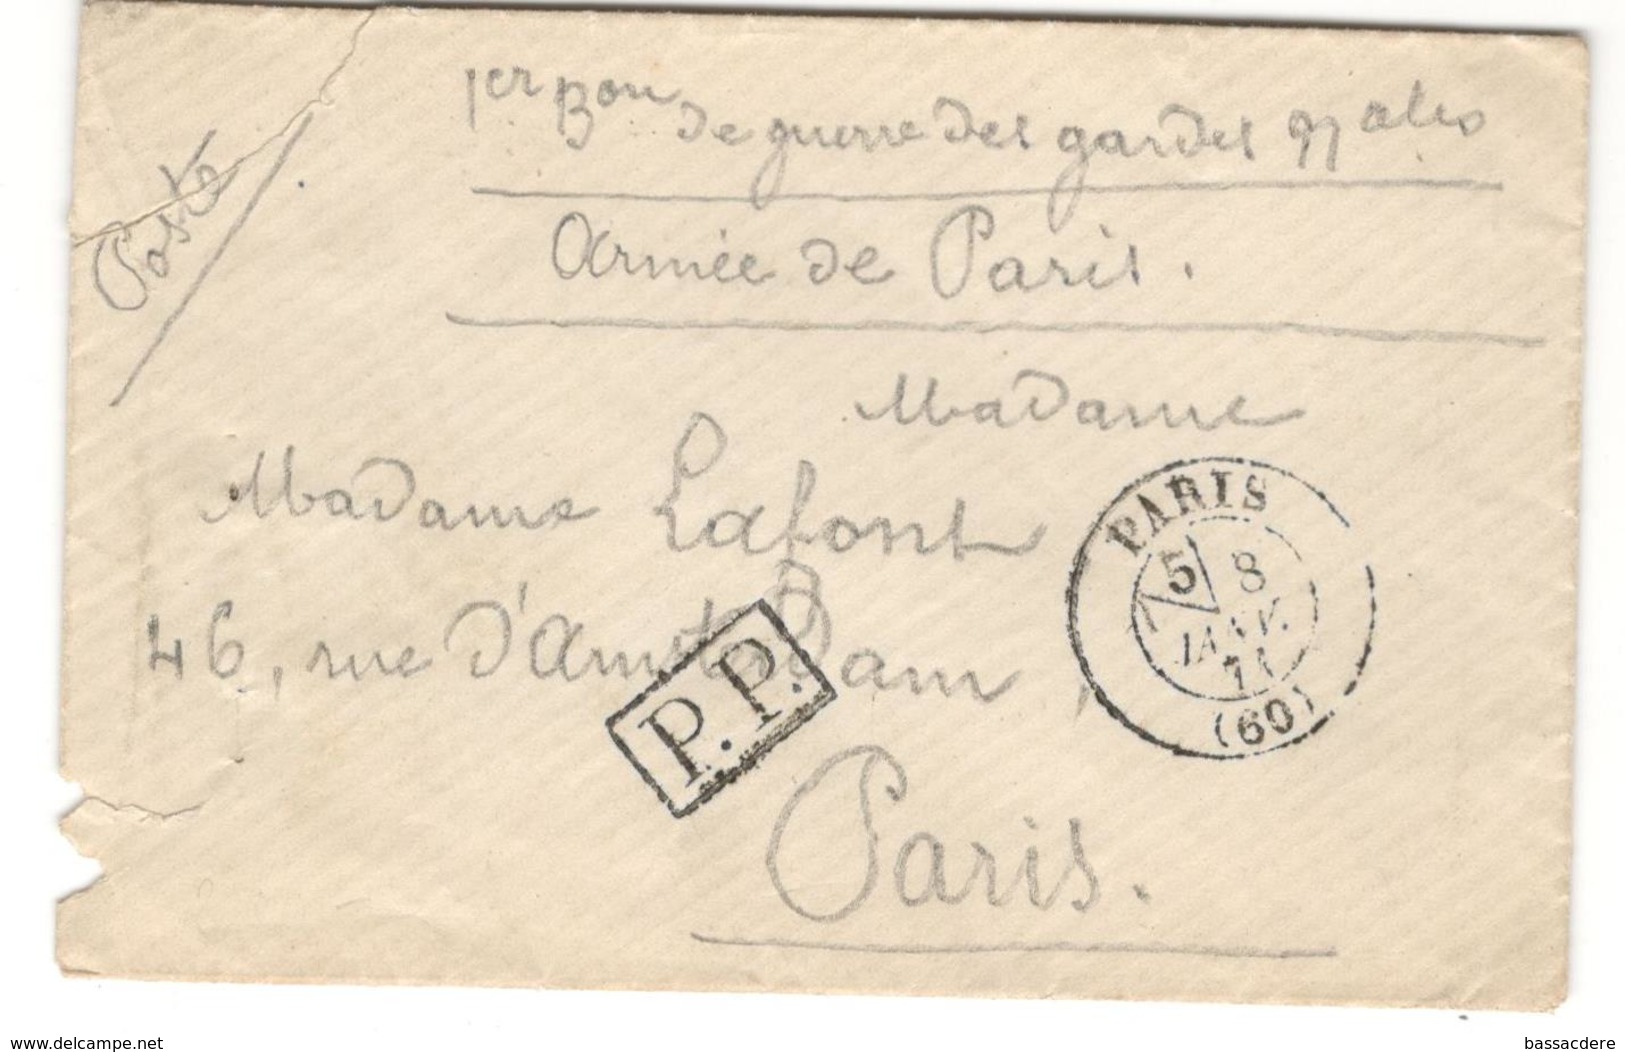 1er Bon de guerre des gardes nales
Poste
Armée de Paris.
Madame
Madame Lafont
46, rue d'Amsterdam,
Paris.
PARIS
5
8
JANV.
71
(60)
P.P.
www.delcampe.net
bassacdere